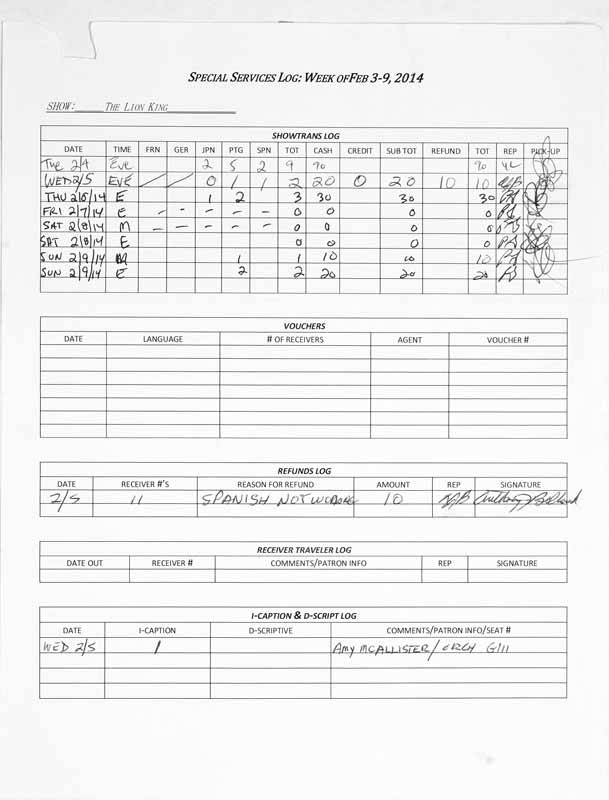 SPECIAL SERVICES LOG: WEEK OFFEB 3-9, 2014
SHOW: THE LION KING
SHOWTRANS LOG
DATE TIME FRN GER JPN PTG SPN TOT CASH CREDIT SUB TOT REFUND TOT REP PICK-UP
Tue 2/4 Eve 2 5 2 9 90 90
WED 2/5 EVE / / 0 1 1 2 20 0 20 10 10
THU 2/6/14 E 1 2 3 30 30 30
FRI 2/7/14 E - - - - - 0 0 0 0
SAT 2/8/14 M - - - - - 0 0 0 0
SAT 2/8/14 E 0 0 0 0
SUN 2/9/14 M 1 1 10 10 10
SUN 2/9/14 E 2 2 20 20 20
VOUCHERS
DATE LANGUAGE # OF RECEIVERS AGENT VOUCHER #
REFUNDS LOG
DATE RECEIVER #'S REASON FOR REFUND AMOUNT REP SIGNATURE
2/5 11 SPANISH NOT 10 Anthony
RECEIVER TRAVELER LOG
DATE OUT RECEIVER # COMMENTS/PATRON INFO REP SIGNATURE
I-CAPTION & D-SCRIPT LOG
DATE I-CAPTION D-SCRIPTIVE COMMENTS/PATRON INFO/SEAT #
WED 2/5 1 AMY MCALLISTER/ ORCH G111